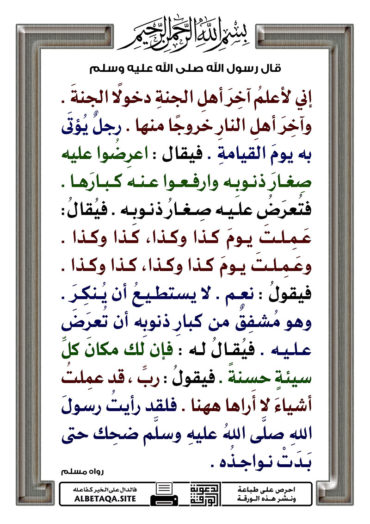 بسم الله الرحمن الرحيم
قال رسول الله صلى الله عليه وسلم
إني لأعلمُ آخِرَ أهلِ الجنةِ دخولًا الجنةَ .
وآخِرَ أهلِ النارِ خروجًا منها . رجلٌ يُؤتَى
به يومَ القيامةِ . فيقال : اعرِضُوا عليه
صغارَ ذنوبِه وارفعوا عنه كبارَها .
فتُعرَضُ عليه صغارُ ذنوبِه . فيُقالُ :
عَمِلتَ يومَ كذا وكذا، كذا وكذا .
وعَمِلتَ يومَ كذا وكذا، كذا وكذا .
فيقولُ : نعم . لا يستطيعُ أن يُنكِرَ .
وهو مُشفِقٌ من كبارِ ذنوبِه أن تُعرَضَ
عليه . فيُقالُ له : فإن لك مكانَ كلِّ
سيئةٍ حسنةً . فيقولُ : ربِّ ، قد عمِلتُ
أشياءَ لا أَراها ههنا . فلقد رأيتُ رسولَ
اللهِ صلَّى اللهُ عليهِ وسلَّم ضحِك حتى
بَدَتْ نواجذُه .
رواه مسلم
احرص على طباعة
ونشر هذه الورقة
فالدال على الخير كفاعله
ALBETAQA.SITE